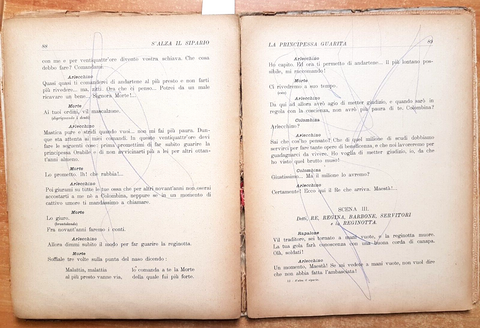 88 S'ALZA IL SIPARIO
con me e per ventiquattr'ore divento vostra schiava. Che cosa
debbo fare? Comandami.
Arlecchino
Quasi quasi ti comanderei di andartene al più presto e non farti
più rivedere... ma, zitti. Ora che ci penso... Potrei da un male
ricavare un bene... Signora Morte!...
Morte
Ai tuoi ordini, vil mascalzone.
Arlecchino
Mastica pure e stridi quando vuoi... non mi fai più paura. Dun-
que sta attenta ai miei comandi. In queste ventiquattr'ore devi
fare le seguenti cose: prima promettimi di far subito guarire la
principessa Orsible e di non avvicinarti più a lei per altri ottan-
tanni almeno.
Morte
Lo prometto. Ih! che rabbia!...
Arlecchino
Poi giurami su tutte le tue cose che per altri novant'anni non oserai
accostarti a me nè a Colombina, neppure se in un momento di
cattivo umore ti mandassimo a chiamare.
Morte
Lo giuro.
Fra novant'anni faremo i conti.
Arlecchino
Allora dimmi subito il modo per far guarire la reginotta.
Morte
Soffiale tre volte sulla punta del naso dicendo:
Malattia, malattia
al più presto vanne via,
lo comanda a te la Morte
della quale fui più forte.
LA PRINCIPESSA GUARITA 89
Arlecchino
Ho capito. Ed ora ti permetto di andartene... il più lontano pos-
sibile, mi raccomando!
Morte
Ci rivedremo a suo tempo.
Arlecchino
Da qui ad allora avrò agio di metter giudizio, e quando sarò in
regola con la coscienza, non avrò più paura di te. Colombina!
Colombina
Arlecchino?
Arlecchino
Sai che cos'ho pensato? Che di quel milione di scudi dobbiamo
servirci per fare tante opere di beneficenza, e che noi lavoreremo per
guadagnarci da vivere. Ho voglia di metter giudizio, io, da che
ho visto quel brutto muso!
Colombina
Giustissimo... Ma il milione lo avremo?
Arlecchino
Certamente! Ecco qui il Re che arriva. Maestà!...
SCENA III.
Detti, RE, REGINA, BARDONE, SERVITORI
e la REGINOTTA.
Vil traditore, sei tornato a mani vuote, e la reginotta muore.
La tua gola farà conoscenza con una buona corda di canapa.
Olà, soldati!
Arlecchino
Un momento, Maestà! Se mi vedete a mani vuote, non vuol dire
che non abbia fatta l'ambasciata!